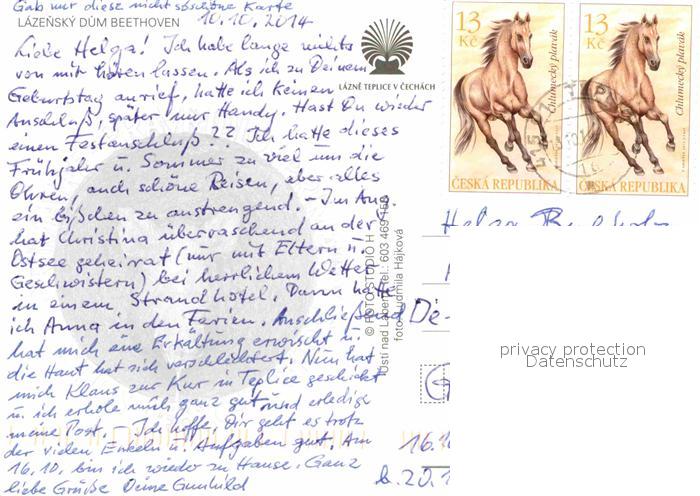 Gab mir diese nicht so schöne Karte
LÁZEŇSKÝ DŮM BEETHOVEN
10.10.2014
Liebe Helga! Ich habe lange nichts
von mir hören lassen. Als ich zu Deinem
Geburtstag anrief, hatte ich keinen
Anschluß, später nur Handy. Hast Du wieder
einen Festanschluß?? Ich hatte dieses
Frühjahr u. Sommer zu viel um die
Ohren, auch schöne Reisen, aber alles
ein bißchen zu anstrengend. - Im Aug.
hat Christina überraschend an der
Ostsee geheiratet (nur mit Eltern u.
Geschwistern) bei herrlichem Wetter
in einem Strandhotel. Dann hatte
ich Anna in den Ferien. Anschließend
hat mich eine Erkältung erwischt u.
die Haut hat sich verschlechtert. Nun hat
mich Klaus zur Kur in Teplice geschickt
u. ich erhole mich ganz gut und erledige
meine Post. Ich hoffe, Dir geht es trotz
der vielen Enkeln u. Aufgaben gut. Am
16.10. bin ich wieder zu Hause. Ganz
liebe Grüße Deine Gunhild
LÁZNĚ TEPLICE V ČECHÁCH
© FOTO STUDIO H
Ústí nad Labem, tel.: 603 469 158
foto Ludmila Hájková
13
Kč
Chlumecký plavák
ČESKÁ REPUBLIKA
13
Kč
Chlumecký plavák
ČESKÁ REPUBLIKA
Helga
De-
16.1
b. 20.1
privacy protection
Datenschutz